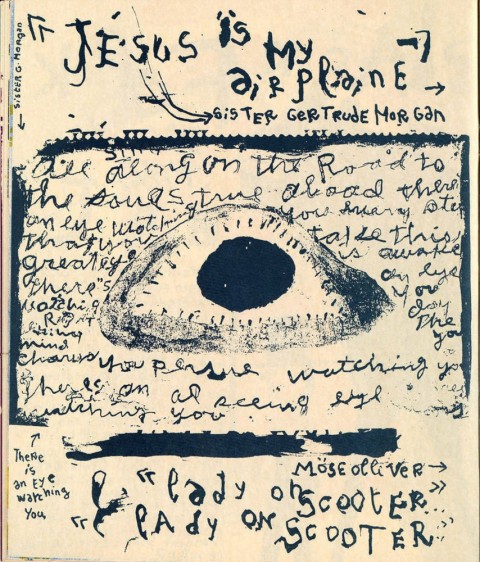 "JESUS iS MY
aiRplaiNE"
SiSTER GERTRUDE MORGAN
SiSTER G. MORGAN
all along on the Road to
the soul,s true aboad there,s
an eye watching you every step
that you take this
greates is awake
There,s an eye
watching you
Right day
the
mind you
chances you persue watching you
Theres an al seeing eye
watching you
There
is
an Eye
watching
you
MOSE OlliVER
"lady on SCOOTER"
"lAdy ON SCOOTER"